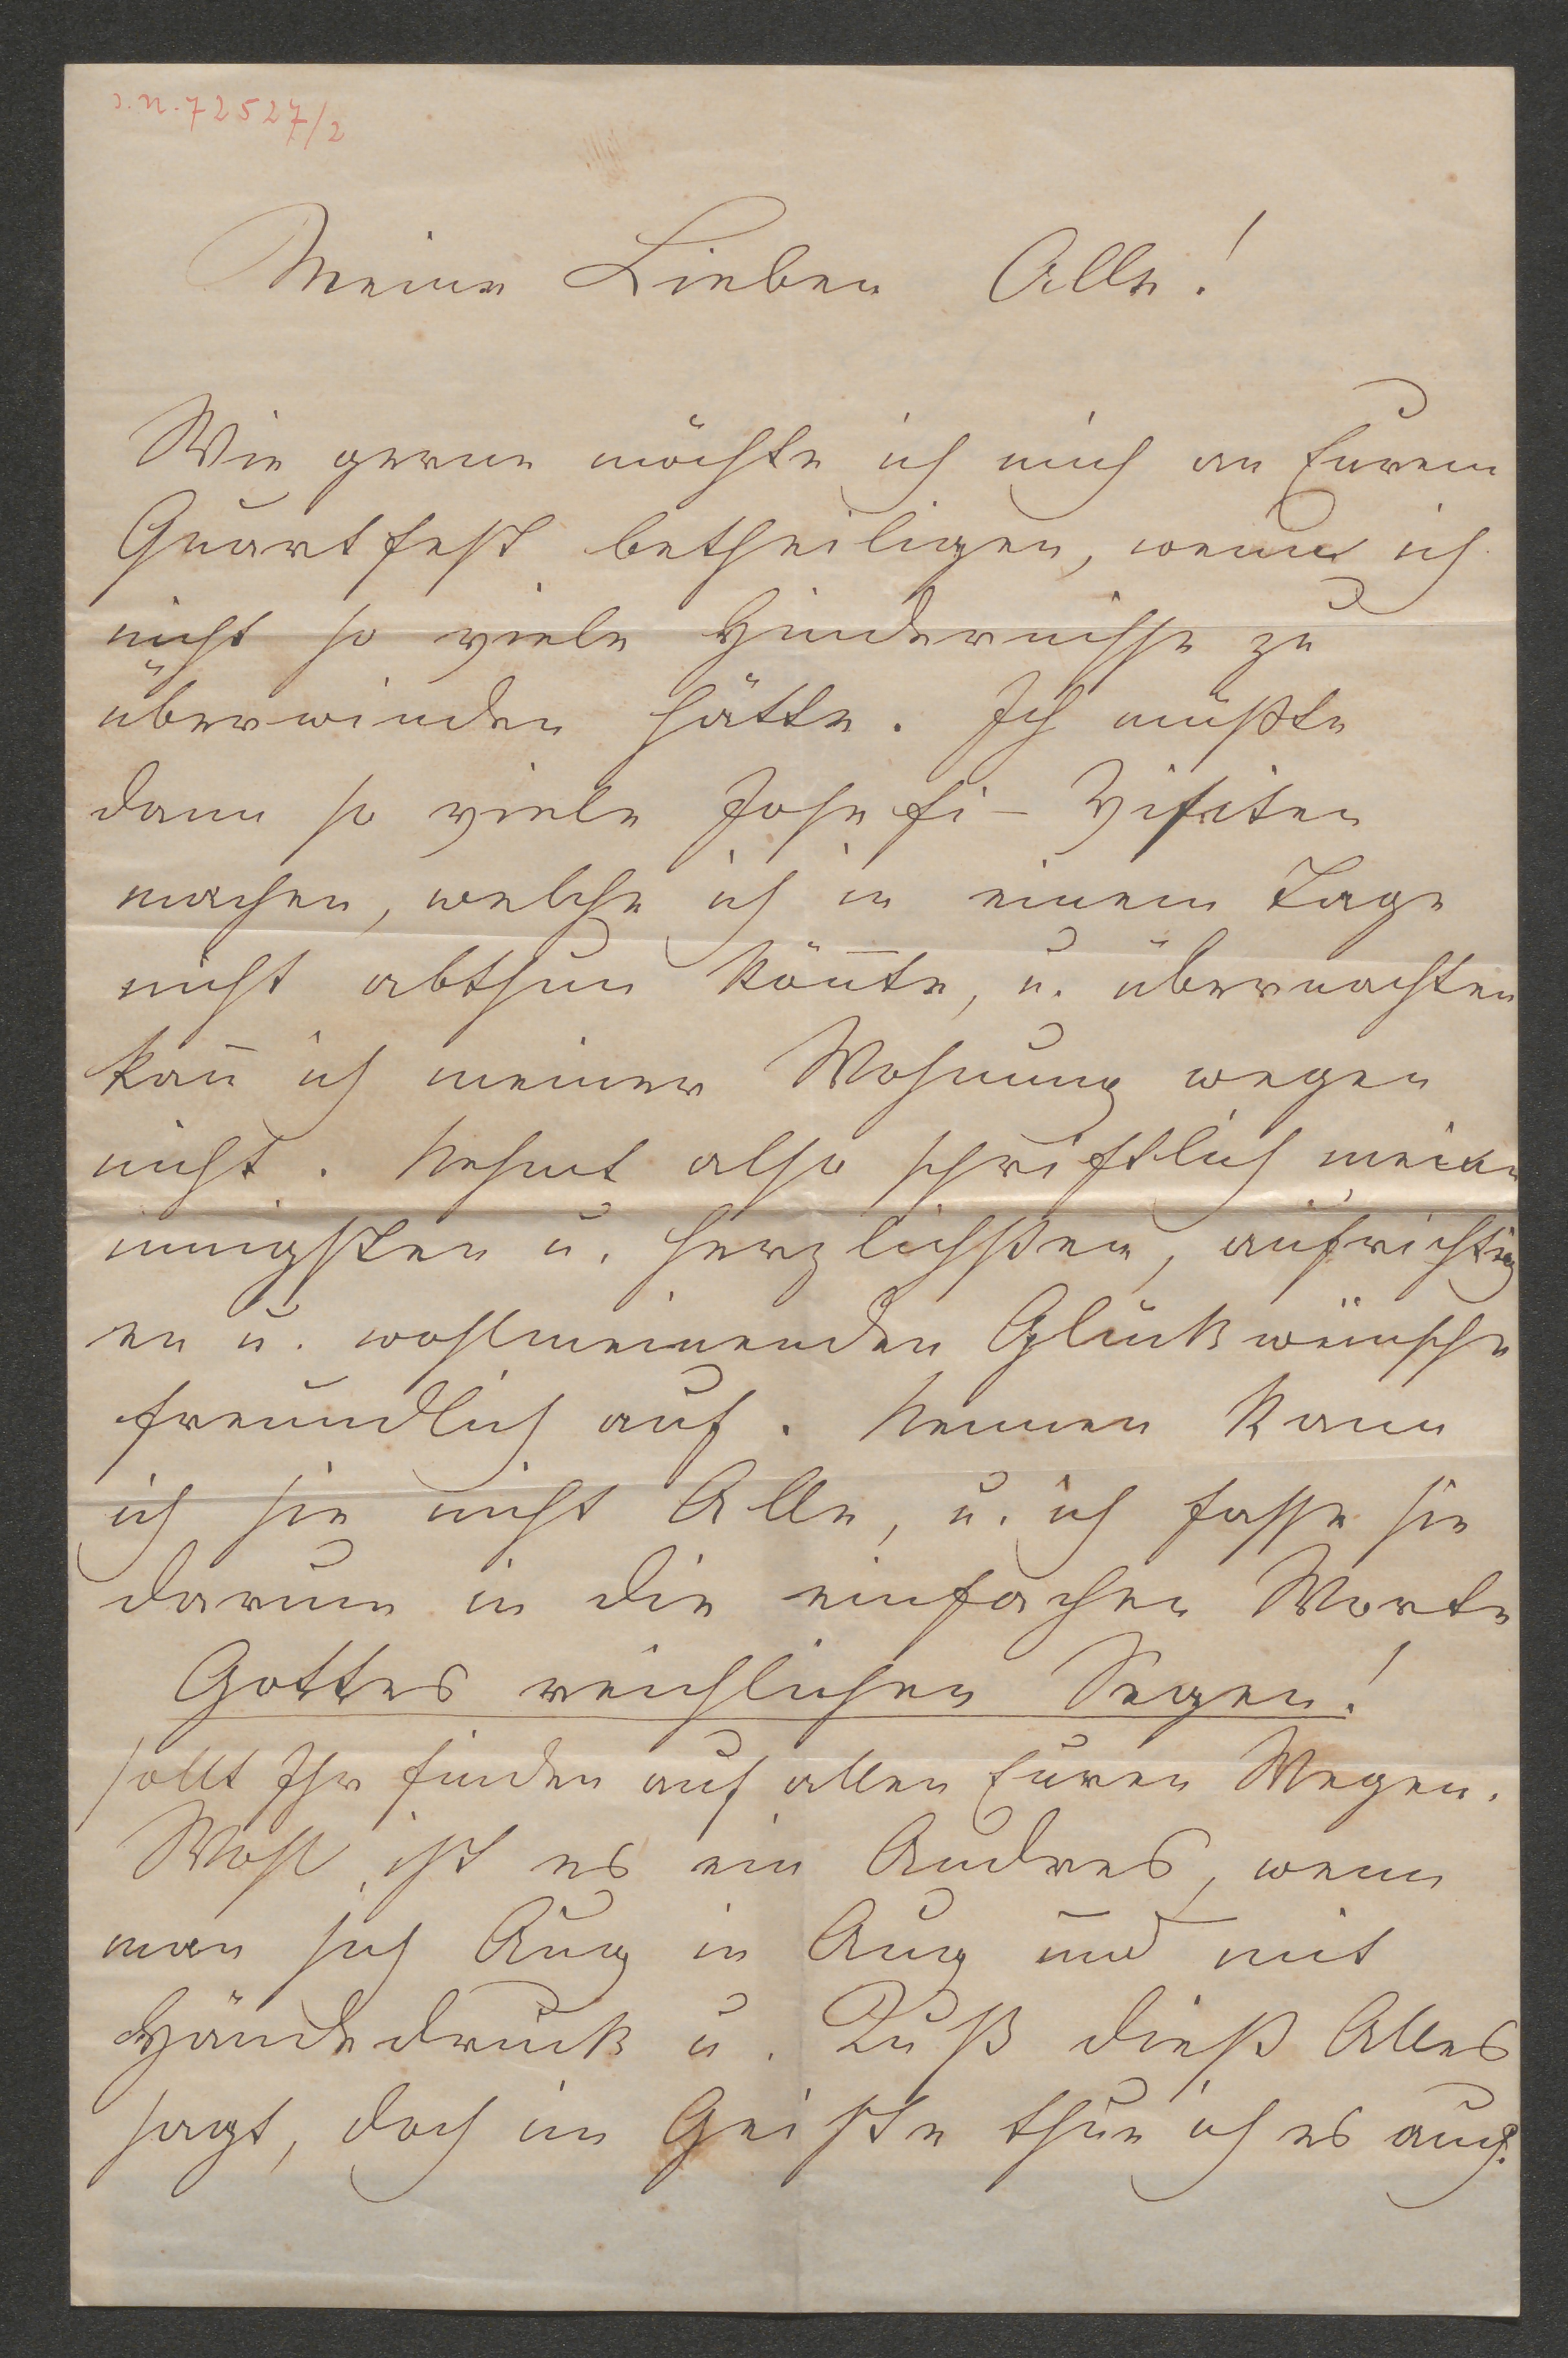 I.N. 72527/2
Meine Lieben Alle!
Wie gerne möchte ich mich an Eurem
Quartfest betheiligen, wenn ich
nicht so viele Hindernisse zu
überwinden hätte. Ich müßte
dann so viele Josefi-Visiten
machen, welche ich in einem Tage
nicht abthun kön̅te, u. übernachten
kan̅ ich meiner Wohnung wegen
nicht. Nehmt also schriftlich meine
innigsten u. herzlichsten, aufrichtig
en u. wohlmeinenden Glückwünsche
freundlich auf. Nennen kann
ich sie nicht Alle, u. ich fasse sie
darum in die einfachen Worte
Gottes reichlichen Segen!
sollt Ihr finden auf allen Euren Wegen.
Wohl ist es ein Andres, wenn
man sich Aug in Aug und mit
Händedruck u. Kuß dieß Alles
sagt, doch im Geiste thue ich es auch.